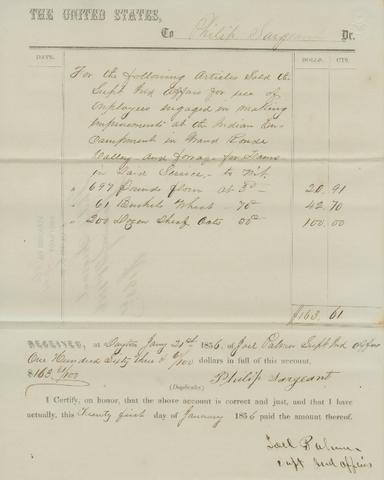 THE UNITED STATES,
To Philip Sargeant Dr.
DATE. DOLLS. CTS.
For the following Articles Sold the
Supt Ind Affairs for use of
employees engaged in making
improvements at the Indian En-
campment in Grand Ronde
Valley and forage for Teams
in Said Service, to Wit
" 697 Pounds flour at 3c 20.91
" 61 Bushels Wheat " 70c 42.70
" 200 Dozen Sheaf Oats 50c 100.00
$163.61
RECEIVED, at Dayton Jany 21st 1856, of Joel Palmer Supt Ind Affairs
One Hundred Sixty three & 61/100 dollars in full of this account.
$163 61/100
Philip Sargeant
(Duplicate)
I Certify, on honor, that the above account is correct and just, and that I have
actually, this Twenty first day of January 1856 paid the amount thereof.
Joel Palmer
Supt Ind Affairs